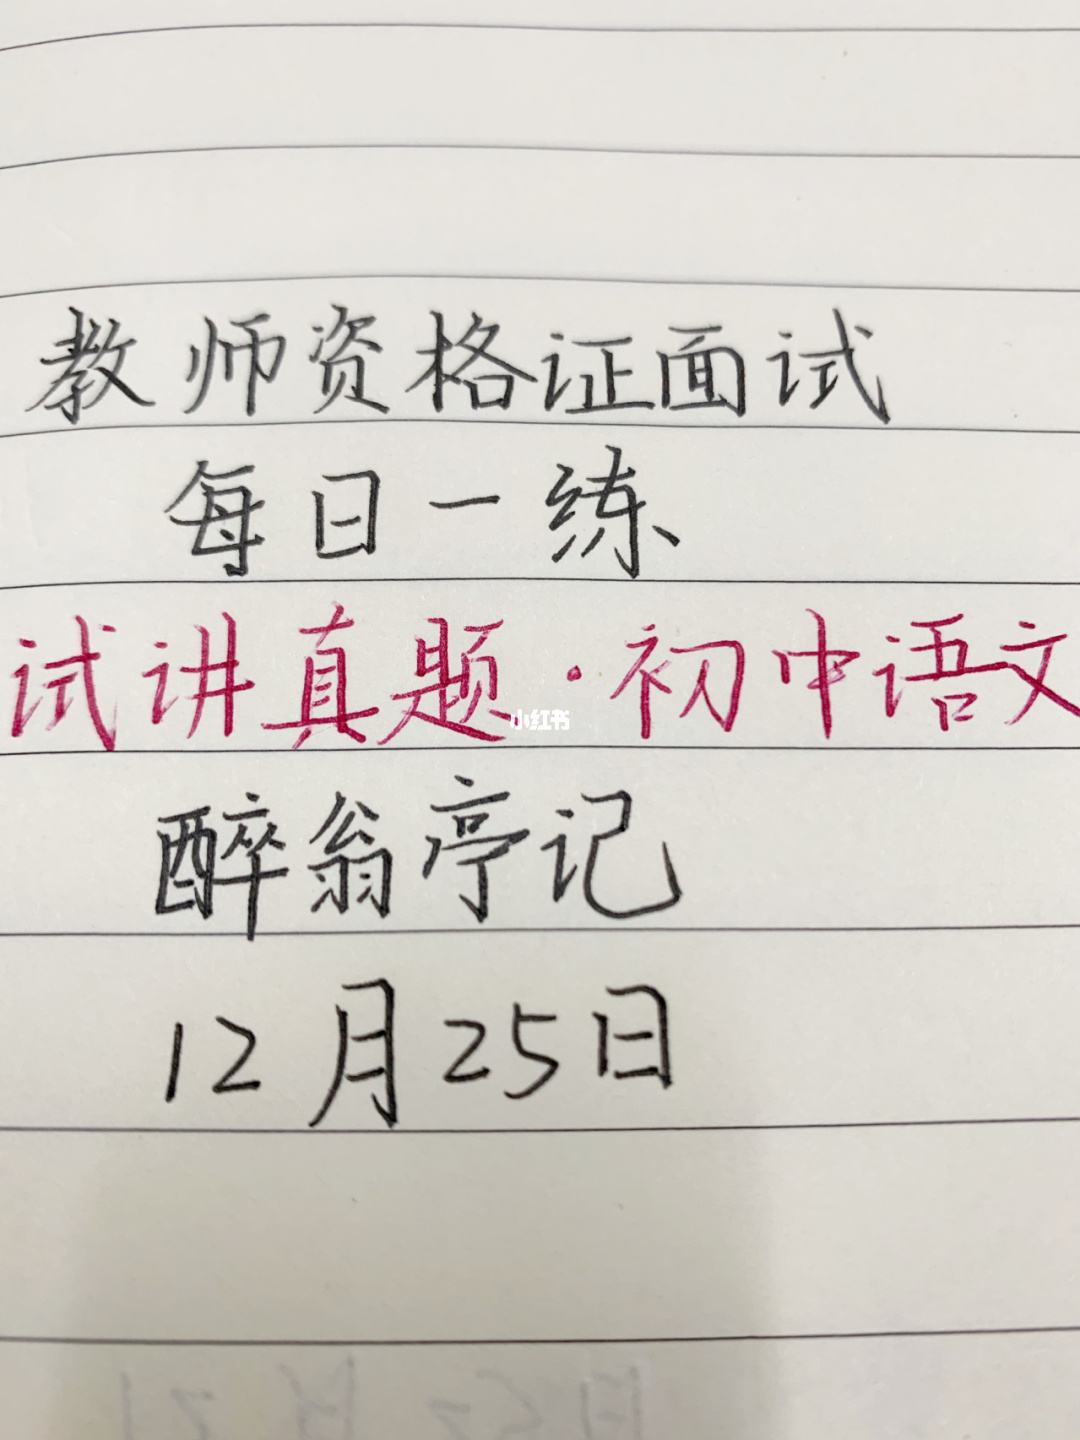 教师资格证面试
每日一练
试讲真题·初中语文
小红书
醉翁亭记
12月25日